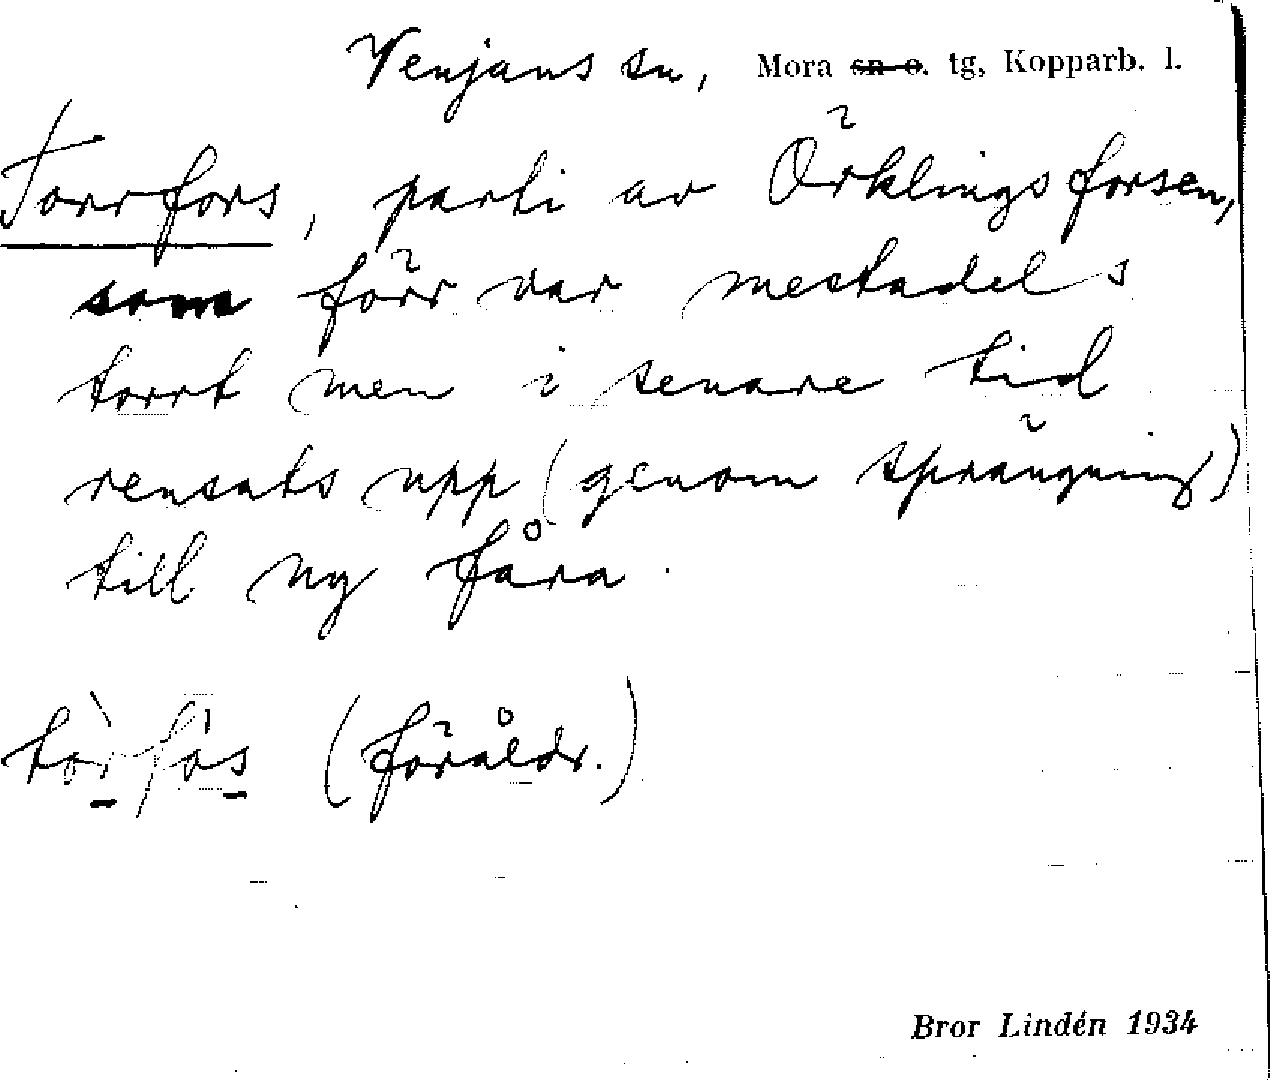 Venjans sn, Mora sn o. tg, Kopparb. l.
Torrfors, parti av Örklingsforsen,
som förr var mestadels
torrt men i senare tid
rensats upp (genom sprängning)
till ny fåra.
tòrfós (föråldr.)
Bror Lindén 1934